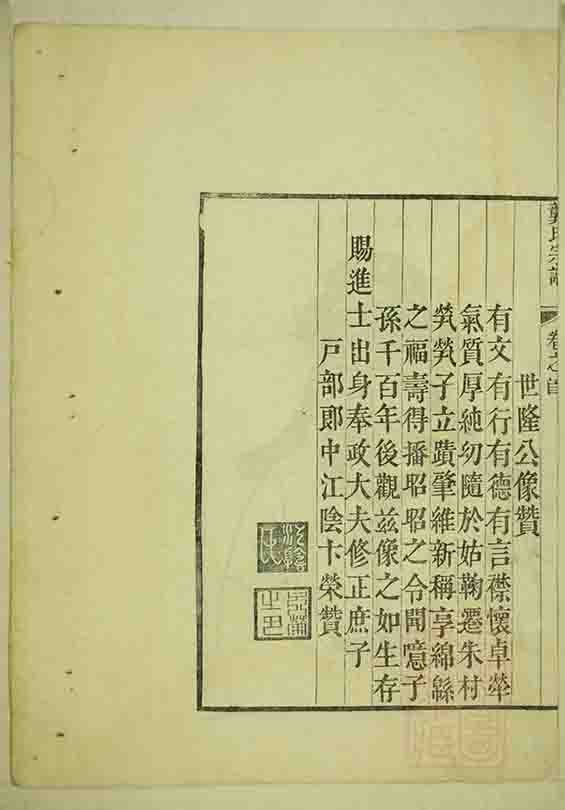 龔氏宗譜 卷之首
世隆公像贊
有文有行有德有言襟懷卓犖
氣質厚純幼隨於姑鞠遷朱村
煢煢孑立蹟肇維新稱享綿緜
之福壽得播昭昭之令聞噫子
孫千百年後觀茲像之如生存
賜進士出身奉政大夫修正庶子
戶部郎中江陰卞榮贊